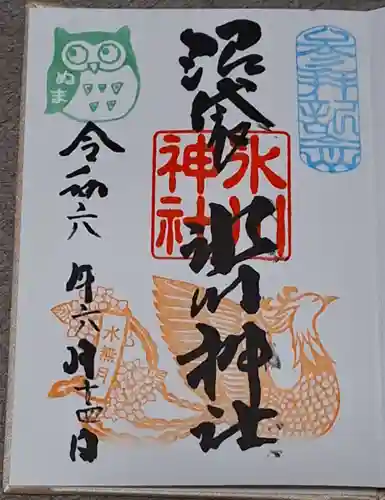 参拝記念
沼袋
氷川神社
氷川
神社
令和六年六月十四日
ぬま
水無月